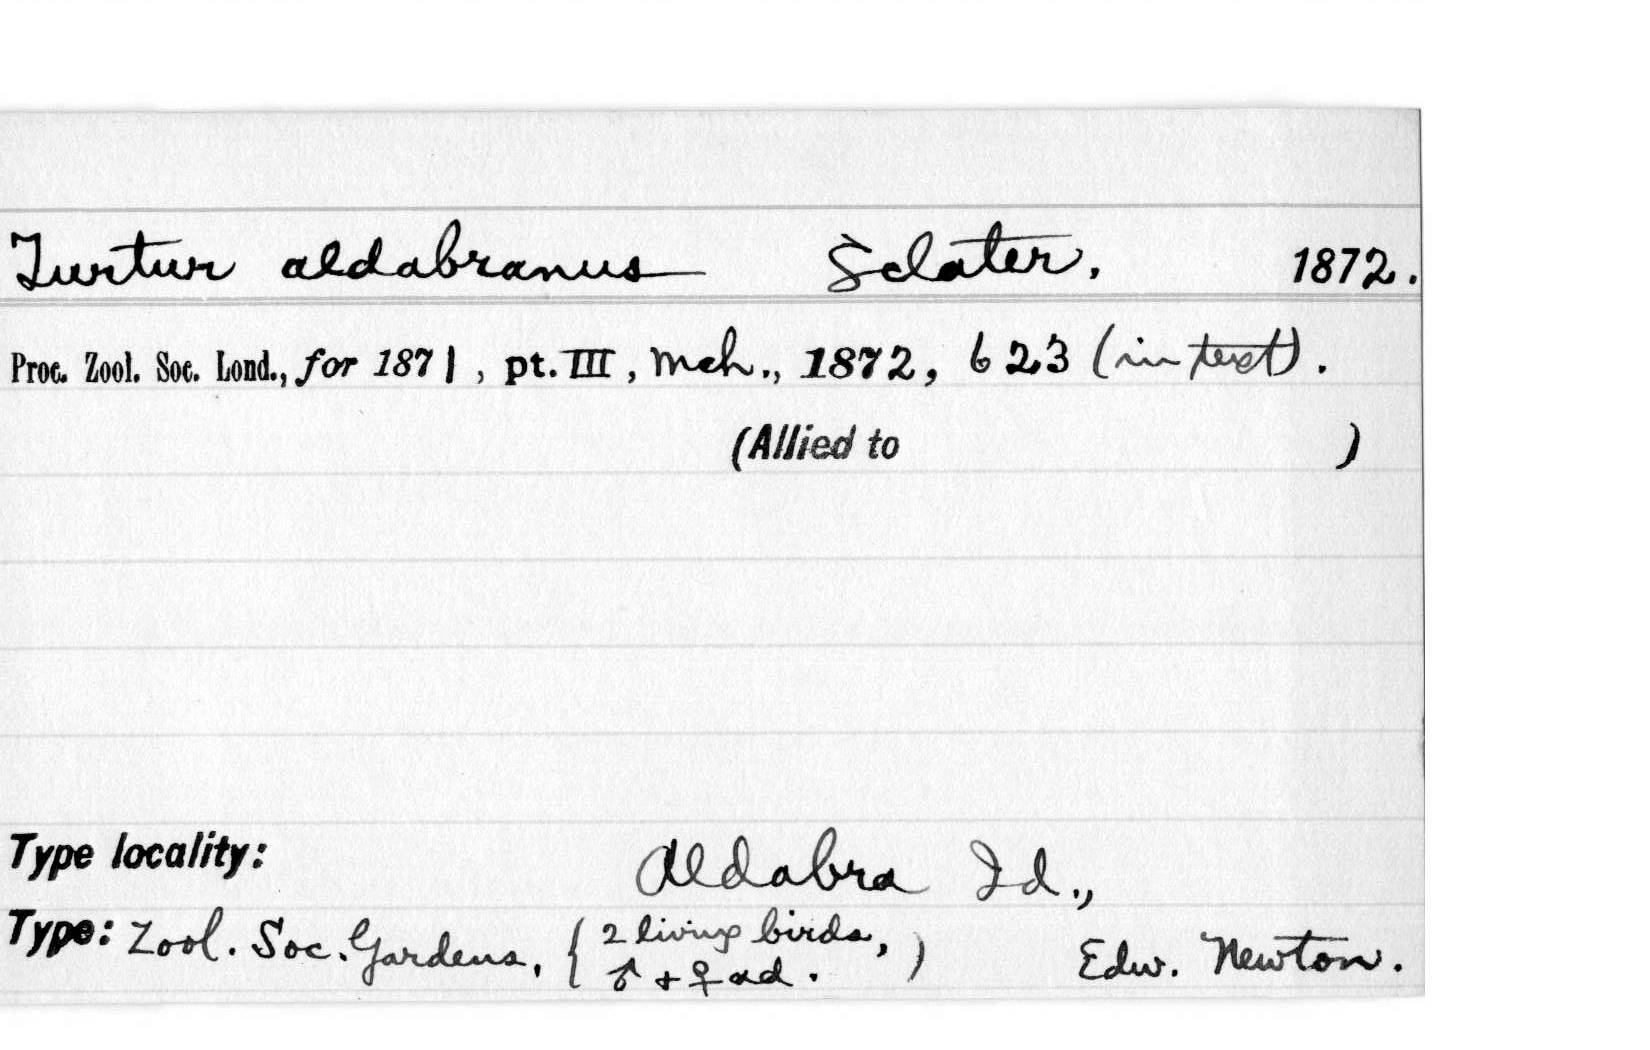 Turtur aldabranus Sclater. 1872.
Proc. Zool. Soc. Lond., for 1871, pt. III, Mch., 1872, 623 (in text).
(Allied to )
Type locality: Aldabra Id.,
Type: Zool. Soc. Gardens. { 2 living birds, ) Edw. Newton.
♂ + ♀ ad.